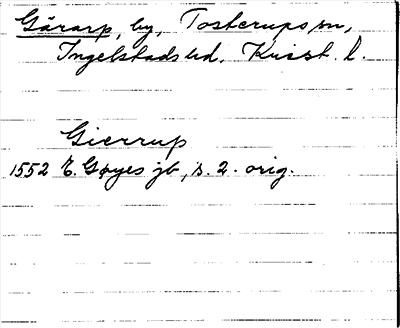 Gärarp, by, Tosterups sn,
Ingelstads hd. Krisst. l.
Gierrup
1552 E. Gøyes jb, s. 2. orig.